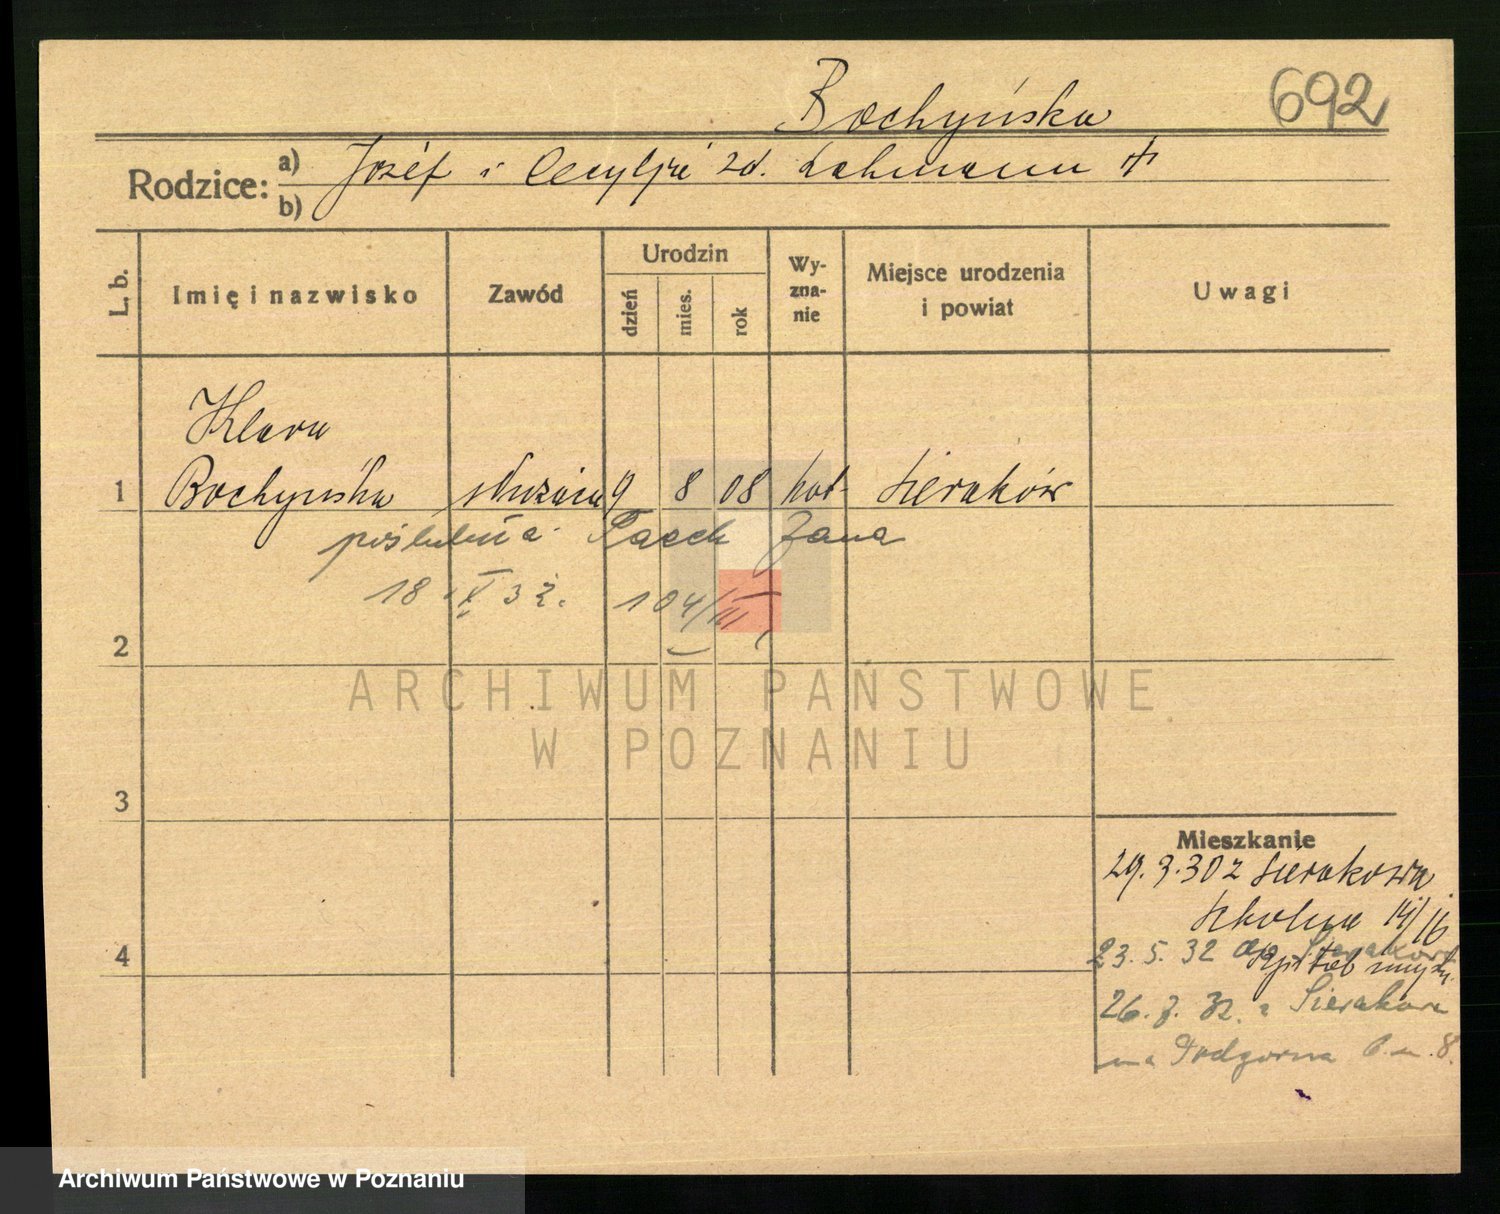 Bochyńska
692
Rodzice: a) Józef i Cecylja zd. Lahmann
b)
L. b.
Imię i nazwisko
Zawód
Urodzin
dzień
mies.
rok
Wy-
zna-
nie
Miejsce urodzenia
i powiat
Uwagi
Klara
1 Bochyńska służąca 9 8 08 kat. Sieraków
poślubiła Paech Jana
18 V 32. 104/III
2
3
4
Mieszkanie
29.3.30 z Sierakowa
Szkolna 14/16
23.5.32 Sierakowa
26.7.32. z Sierakowa
na Podgorna 6 m. 8.
ARCHIWUM PAŃSTWOWE
W POZNANIU
Archiwum Państwowe w Poznaniu